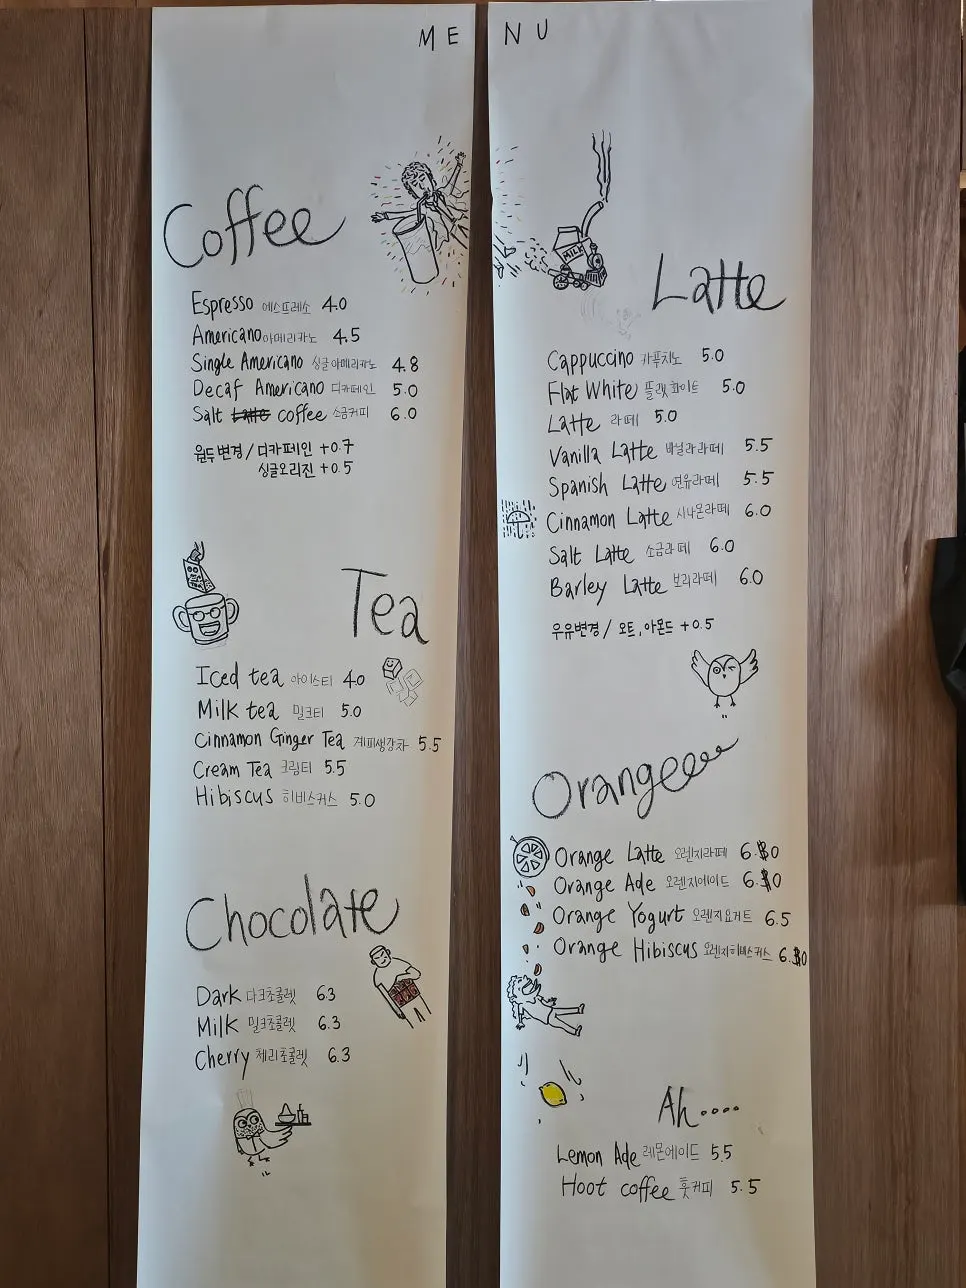 M E N U
Coffee
Espresso 에스프레소 4.0
Americano 아메리카노 4.5
Single Americano 싱글아메리카노 4.8
Decaf Americano 디카페인 5.0
Salt Latte coffee 소금커피 6.0
원두변경 / 디카페인 +0.7
싱글오리진 +0.5
Tea
Iced tea 아이스티 4.0
Milk tea 밀크티 5.0
Cinnamon Ginger Tea 계피생강차 5.5
Cream Tea 크림티 5.5
Hibiscus 히비스커스 5.0
Chocolate
Dark 다크초콜렛 6.3
Milk 밀크초콜렛 6.3
Cherry 체리초콜렛 6.3
MILK
Latte
Cappuccino 카푸치노 5.0
Flat White 플랫화이트 5.0
Latte 라떼 5.0
Vanilla Latte 바닐라라떼 5.5
Spanish Latte 연유라떼 5.5
Cinnamon Latte 시나몬라떼 6.0
Salt Latte 소금라떼 6.0
Barley Latte 보리라떼 6.0
우유변경 / 오트, 아몬드 +0.5
Orangeeee
Orange Latte 오렌지라떼 6.0
Orange Ade 오렌지에이드 6.0
Orange Yogurt 오렌지요거트 6.5
Orange Hibiscus 오렌지히비스커스 6.0
Ah....
Lemon Ade 레몬에이드 5.5
Hoot coffee 훗커피 5.5